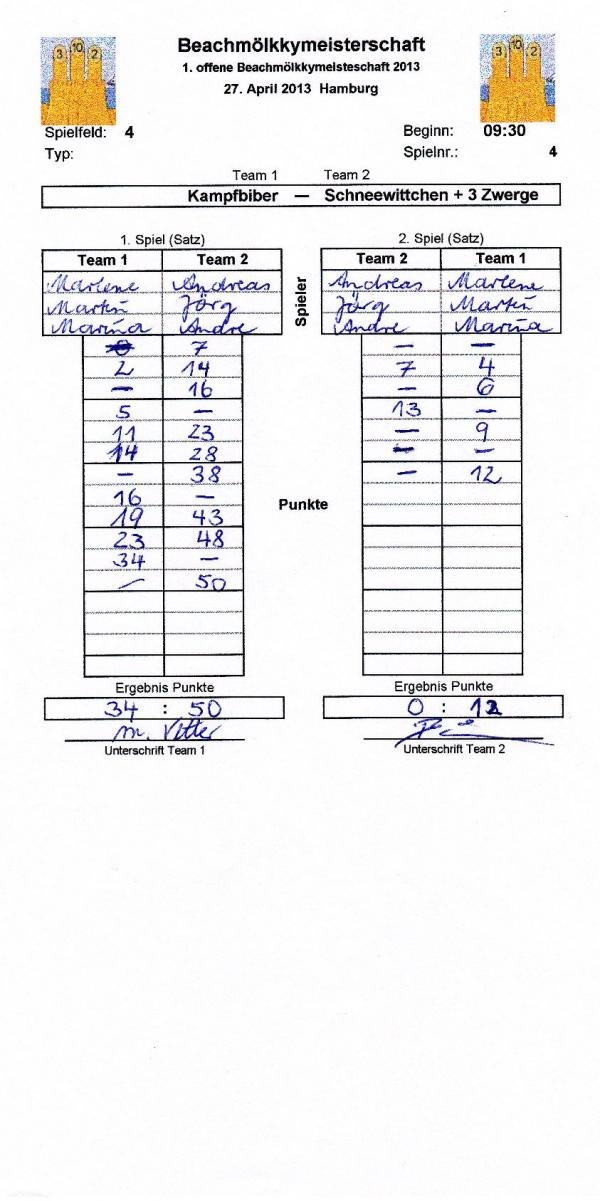 3 10 2
Beachmölkkymeisterschaft
3 10 2
1. offene Beachmölkkymeisteschaft 2013
27. April 2013 Hamburg
Spielfeld: 4 Beginn: 09:30
Typ: Spielnr.: 4
Team 1 Team 2
Kampfbiber — Schneewittchen + 3 Zwerge
1. Spiel (Satz) 2. Spiel (Satz)
Team 1 Team 2 Team 2 Team 1
Marlene Andreas Andreas Marlene
Martin Jörg Spieler Jörg Martin
Marina Andre Andre Marina
7 — —
2 14 7 4
— 16 — 6
5 — 13 —
11 23 — 9
14 28 — —
— 38 — 12
16 —
19 43 Punkte
23 48
34 —
— 50
Ergebnis Punkte Ergebnis Punkte
34 : 50 0 : 12
Unterschrift Team 1 Unterschrift Team 2